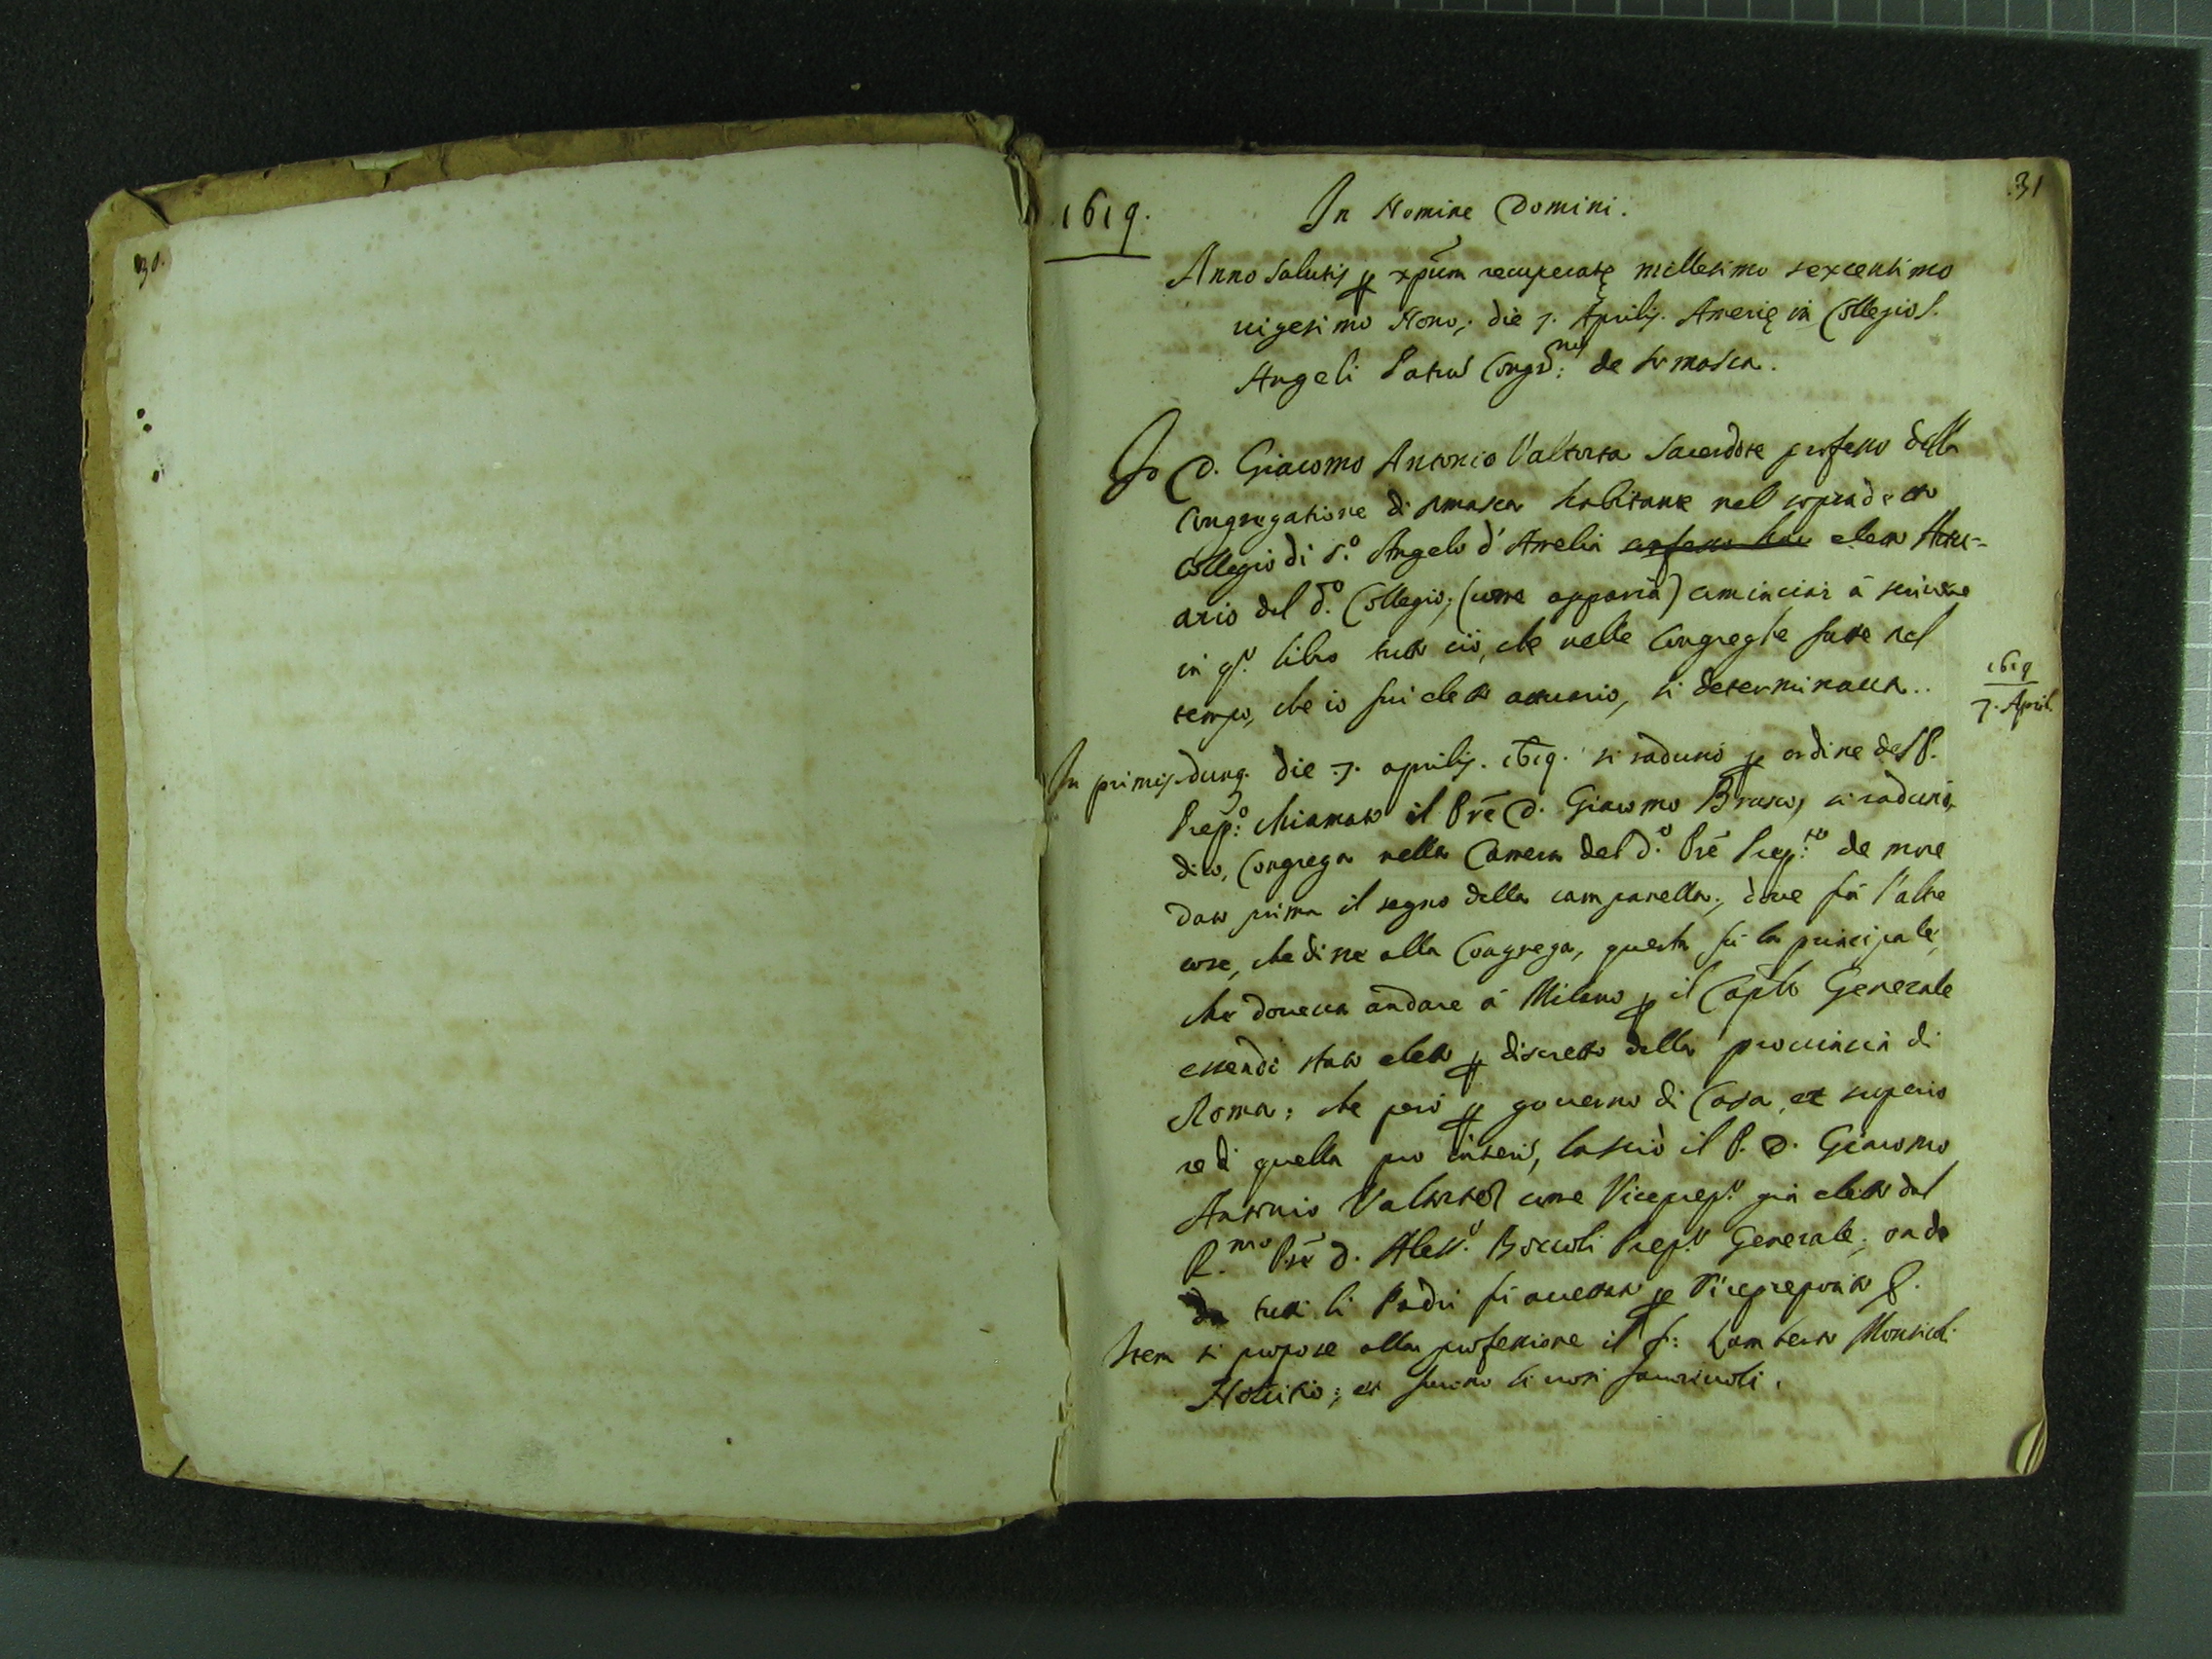 30.
31
1619.
In Nomine Domini.
Anno salutis p xpum recuperatę millesimo sexcentimo
uigesimo Nono; die 7. Aprilis. Amerię in Collegio S.
Angeli Patrum Congr:nis de Somasca.
Io D. Giacomo Antonio Valtorta Sacerdote professo della
Congregatione di Somasca habitante nel sopradetto
Collegio di S.o Angelo d'Amelia eletto Attu-
ario del d.o Collegio; (come apparirà) cominciai à scriuere
in q.o libro tutto ciò, che nelle Congreghe fatte nel
tempo, che io fui eletto attuario, si determinaua..
1619
7. April.
In primis dunq. die .7. aprilis. 1619. si radunò p ordine del P.
Prep:o chiamato il Prē D. Giacomo Brusco, si radunò,
dico, Congrega nella Camera del d.o Prē Prep:to de more
dato prima il segno della campanella; doue frà l'altre
cose, che disse alla Congrega, questa fù la principale,
che doueua andare à Milano p il Caplo Generale
essendo stato eletto p discreto della prouincia di
Roma; che però p gouerno di Casa, et superio
re di quella pro interim, lasciò il P. D. Giacomo
Antonio Valtorta come Viceprep.o già eletto dal
R.mo Prē D. Aless.o Boccoli Prep.o Generale; onde
da tutti li Padri fù accettato p Viceprepoisto
Item si propose alla professione il f: Lamberto
Nouitio; et furono li uoti fauoreuoli.